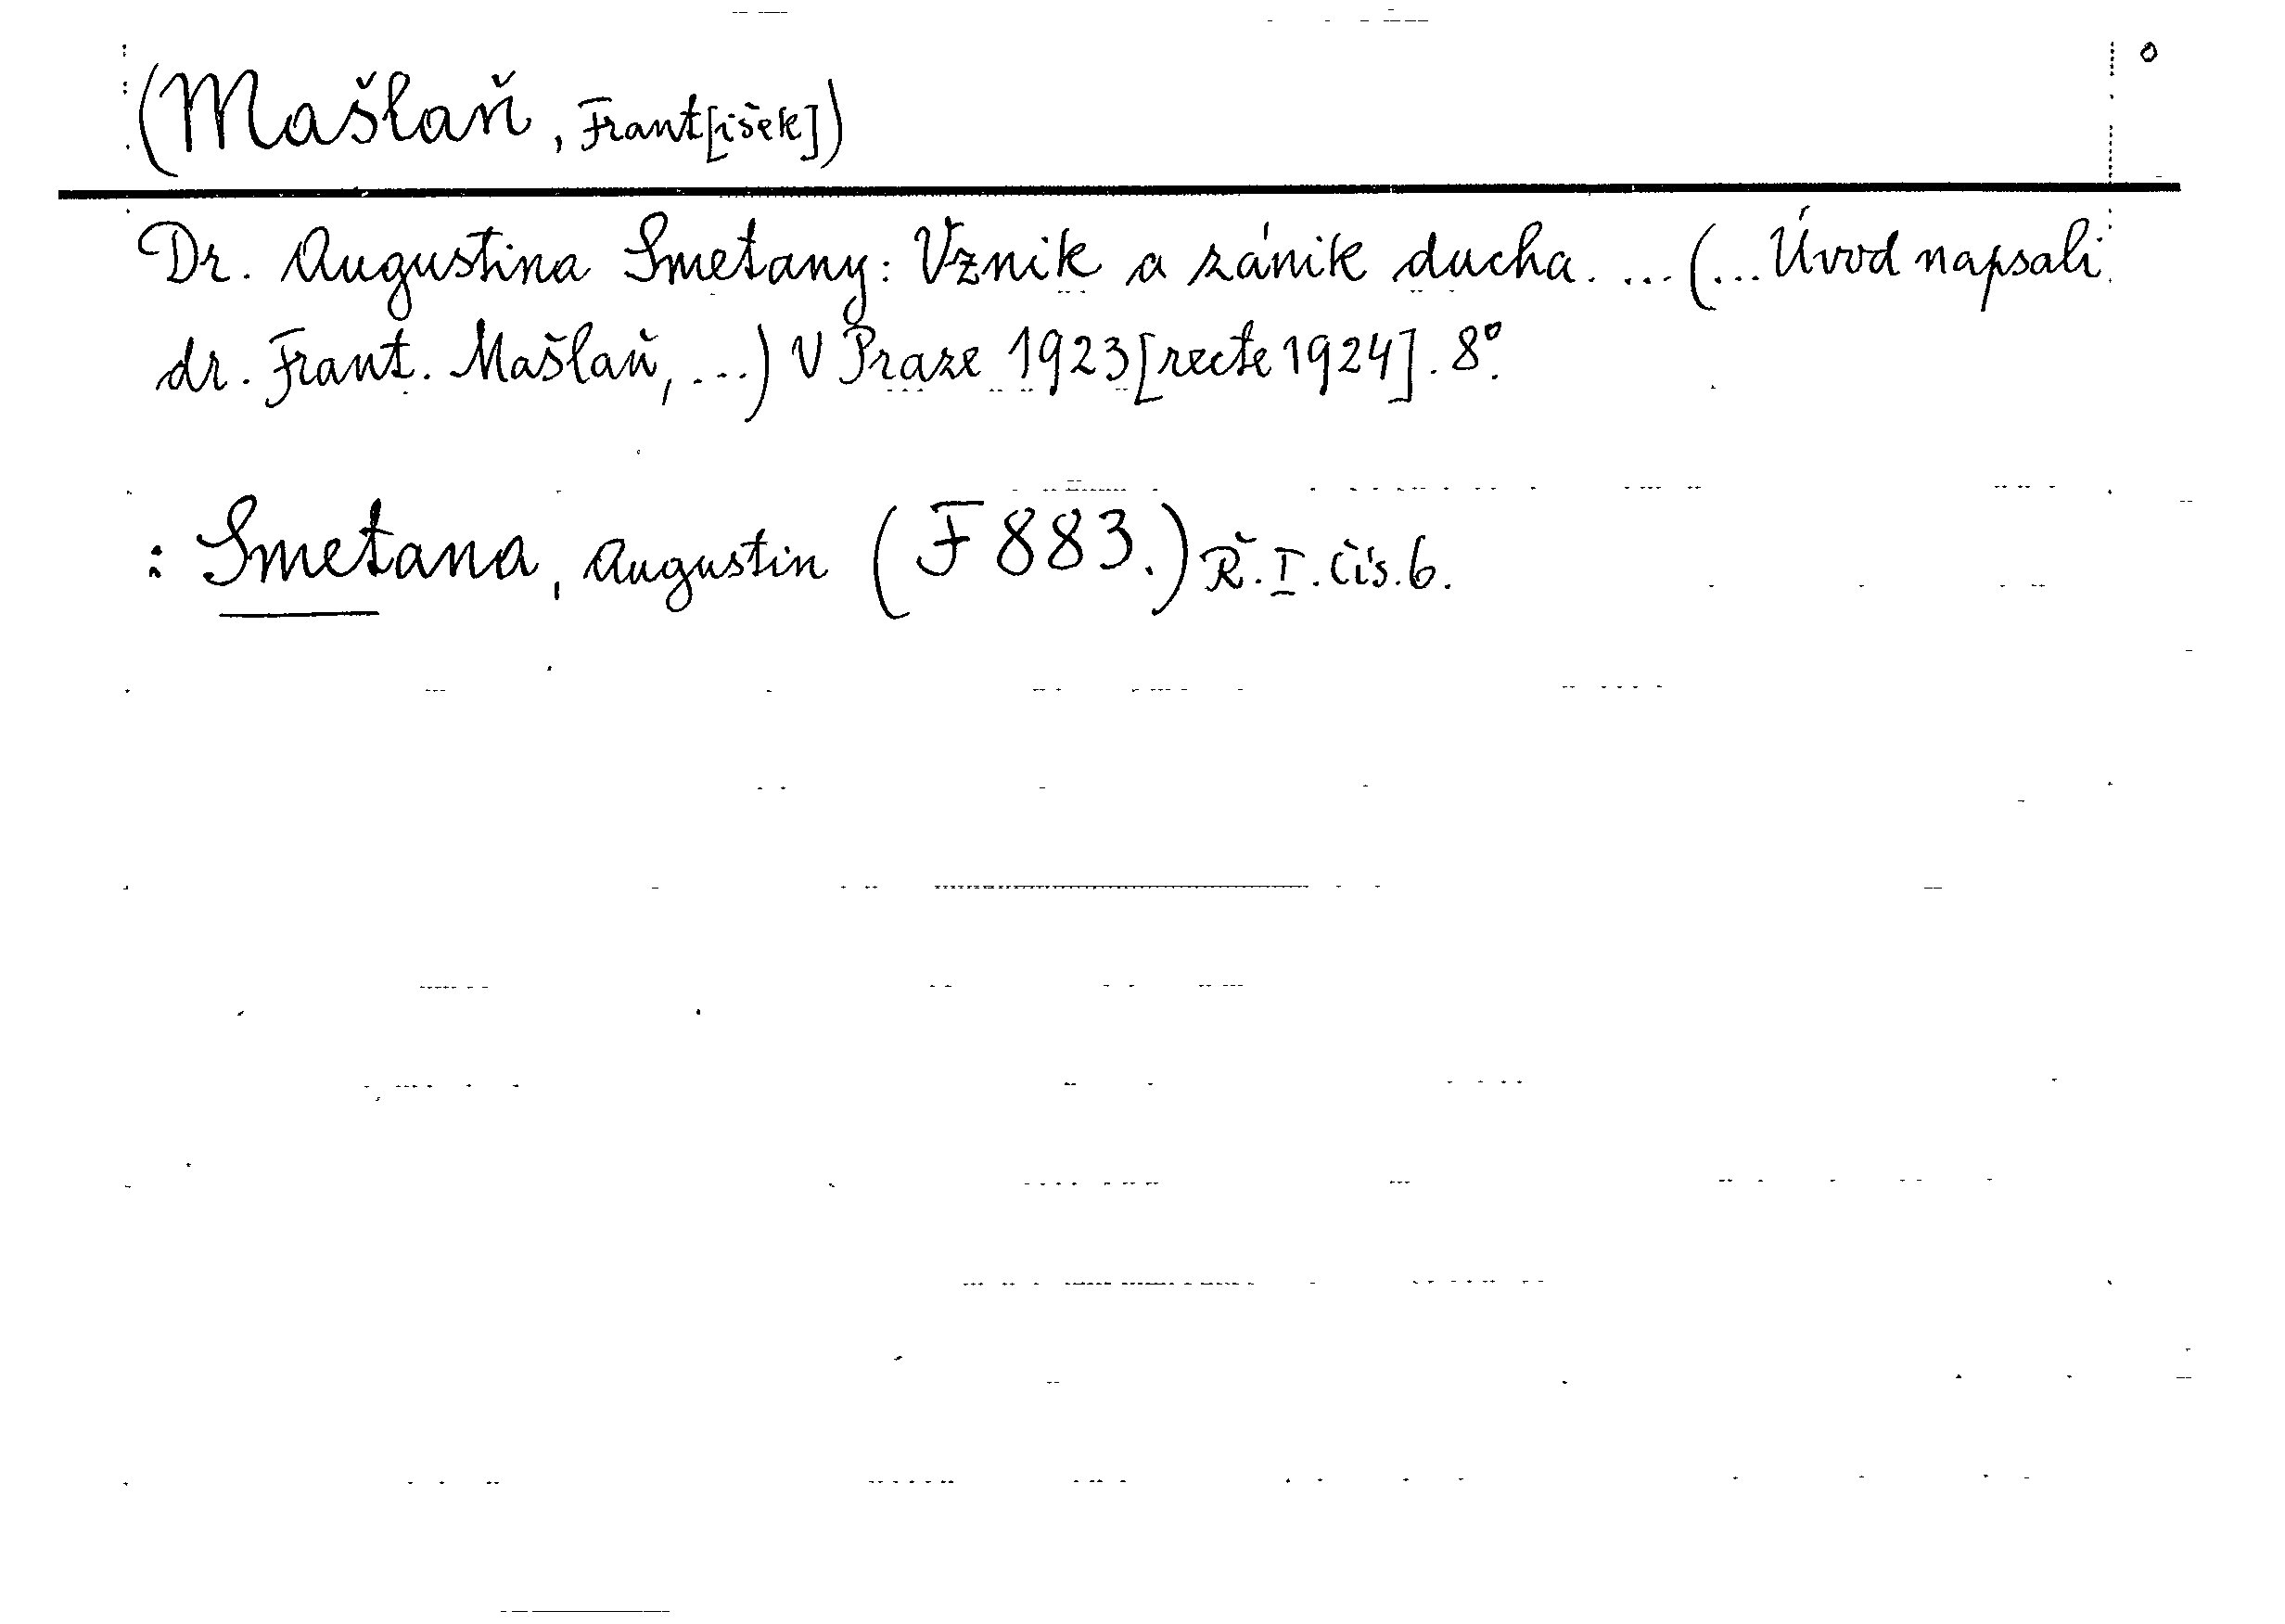 (Mašlaň, Frant[išek])
Dr. Augustina Smetany: Vznik a zánik ducha. ... (... Úvod napsali
dr. Frant. Mašlaň, ...) V Praze 1923 [recte 1924]. 8°.
: Smetana, Augustin (F 883.) Ř. I. čís. 6.